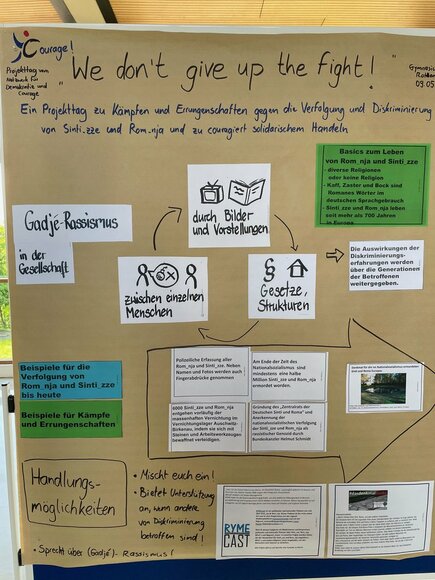 Courage!
Projekttag vom
Netzwerk für
Demokratie und
Courage
"We don't give up the fight!"
Gymnasium
09.05
Ein Projekttag zu Kämpfen und Errungenschaften gegen die Verfolgung und Diskriminierung
von Sinti_zze und Rom_nja und zu couragiert solidarischem Handeln
Basics zum Leben
von Rom_nja und Sinti_zze
- diverse Religionen
oder keine Religion
- Kaff, Zaster und Bock sind
Romanes Wörter im
deutschen Sprachgebrauch
- Sinti_zze und Rom_nja leben
seit mehr als 700 Jahren
in Europa
durch Bilder
und Vorstellungen
Gadjé-Rassismus
in der
Gesellschaft
zwischen einzelnen
Menschen
§
Gesetze,
Strukturen
Die Auswirkungen der
Diskriminierungs-
erfahrungen werden
über die Generationen
der Betroffenen
weitergegeben.
Beispiele für die
Verfolgung von
Rom_nja und Sinti_zze
bis heute
Beispiele für Kämpfe
und Errungenschaften
Polizeiliche Erfassung aller
Rom_nja und Sinti_zze. Neben
Namen und Fotos werden auch
Fingerabdrücke genommen
Am Ende der Zeit des
Nationalsozialismus sind
mindestens eine halbe
Million Sinti_zze und Rom_nja
ermordet worden.
6000 Sinti_zze und Rom_nja
entgehen vorläufig der
massenhaften Vernichtung im
Vernichtungslager Auschwitz-
Birkenau, indem sie sich mit
Steinen und Arbeitswerkzeugen
bewaffnet verteidigen.
Gründung des "Zentralrats der
Deutschen Sinti und Roma" und
Anerkennung der
nationalsozialistischen Verfolgung
der Sinti_zze und Rom_nja als
rassistischer Genozid durch
Bundeskanzler Helmut Schmidt
Handlungs-
möglichkeiten
• Mischt euch ein!
• Bietet Unterstützung
an, wenn andere
von Diskriminierung
betroffen sind!
• Sprecht über (Gadjé)-Rassismus!
RYME
CAST